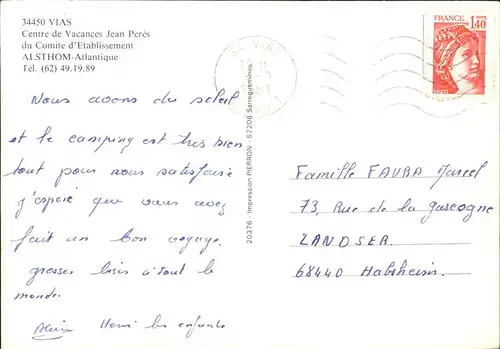 34450 VIAS
Centre de Vacances Jean Perès
du Comite d'Etablissement
ALSTHOM-Atlantique
Tél. (62) 49.19.89
VIAS
FRANCE
1,40
Nous avons du soleil
et le camping est très bien
tout pour nous satisfaire
j'espère que vous avez
fait un bon voyage.
grosses bises à tout le
monde.
Henri les enfants
20376 - Impression PIERRON - 57206 Sarreguemines
Famille FAUBA Marcel
73, Rue de la gascogne
LANDSER
68440 Habsheim